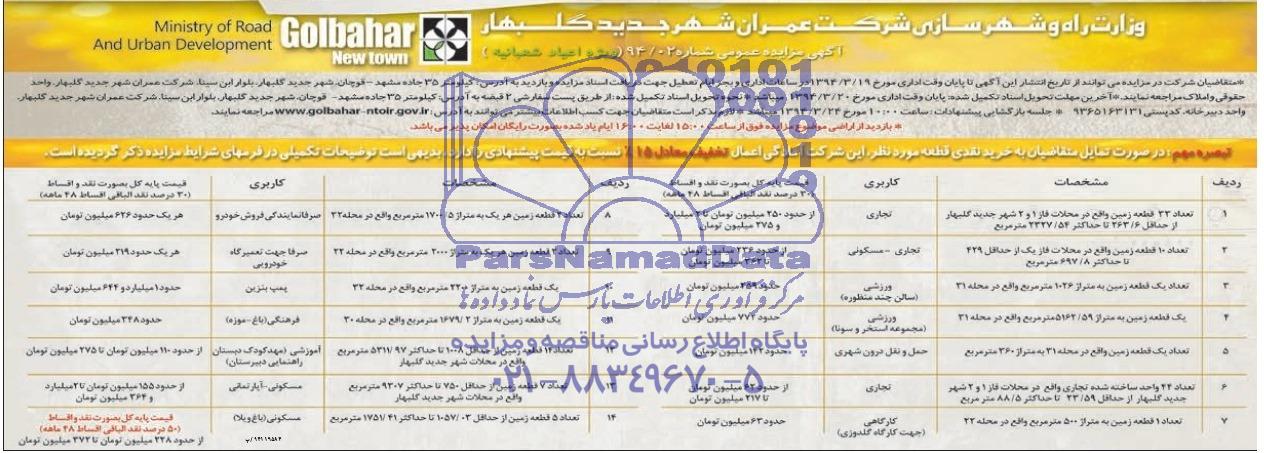 وزارت راه و شهرسازی شرکت عمران شهر جدید گلبهار
Golbahar
New town
Ministry of Road
And Urban Development
آگهی مزایده عمومی شماره ۹۴/۰۲ (ویژه اعیاد شعبانیه)
*متقاضیان شرکت در مزایده می توانند از تاریخ انتشار این آگهی تا پایان وقت اداری مورخ ۱۳۹۴/۳/۱۹ در ساعات اداری و در ایام تعطیل جهت دریافت اسناد مزایده و بازدید به آدرس: کیلومتر ۳۵ جاده مشهد - قوچان، شهر جدید گلبهار، بلوار ابن سینا، شرکت عمران شهر جدید گلبهار، واحد
حقوقی و املاک مراجعه نمایند.*آخرین مهلت تحویل اسناد تکمیل شده: پایان وقت اداری مورخ ۱۳۹۴/۳/۲۰ میباشد * نحوه تحویل اسناد تکمیل شده: از طریق پست سفارشی ۲ قبضه به آدرس: کیلومتر ۳۵ جاده مشهد - قوچان، شهر جدید گلبهار، بلوار ابن سینا، شرکت عمران شهر جدید گلبهار،
واحد دبیرخانه، کدپستی ۹۳۶۵۱۶۳۱۳۱ * جلسه بازگشایی پیشنهادات: ساعت ۱۰:۰۰ مورخ ۱۳۹۴/۳/۲۴ میباشد *لازم بذکر است متقاضیان جهت کسب اطلاعات بیشتر می توانند به آدرس: www.golbahar-ntoir.gov.ir مراجعه نمایند.
* بازدید از اراضی موضوع مزایده فوق از ساعت ۱۵:۰۰ لغایت ۱۶:۰۰ ایام یاد شده بصورت رایگان امکان پذیر می باشد.
تبصره مهم: در صورت تمایل متقاضیان به خرید نقدی قطعه مورد نظر، این شرکت آمادگی اعمال تخفیف معادل ۱۵٪ نسبت به قیمت پیشنهادی را دارد، بدیهی است توضیحات تکمیلی در فرمهای شرایط مزایده ذکر گردیده است.
ردیف مشخصات کاربری قیمت پایه کل بصورت نقد و اقساط
(۳۰ درصد نقد الباقی اقساط ۴۸ ماهه)
۱ تعداد ۳۳ قطعه زمین واقع در محلات فاز ۱ و ۲ شهر جدید گلبهار
از حداقل ۲۶۳/۶ تا حداکثر ۲۳۲۷/۵۴ مترمربع
تجاری
از حدود ۲۵۰ میلیون تومان تا ۲ میلیارد
و ۲۷۵ میلیون تومان
۲ تعداد ۱۰ قطعه زمین واقع در محلات فاز یک از حداقل ۴۲۹
تا حداکثر ۶۹۷/۸ مترمربع
تجاری - مسکونی
از حدود ۲۳۶ میلیون تومان
تا ۳۶۲ میلیون تومان
۳ تعداد یک قطعه زمین به متراژ ۱۰۲۶ مترمربع واقع در محله ۳۱
ورزشی
(سالن چند منظوره)
حدود ۳۵۹ میلیون تومان
۴ یک قطعه زمین به متراژ ۵۱۶۲/۵۹ مترمربع واقع در محله ۳۱
ورزشی
(مجموعه استخر و سونا)
حدود ۷۷۴ میلیون تومان
۵ تعداد یک قطعه زمین واقع در محله ۳۱ به متراژ ۳۶۰ مترمربع
حمل و نقل درون شهری
حدود ۱۴۴ میلیون تومان
۶ تعداد ۴۴ واحد ساخته شده تجاری واقع در محلات فاز ۱ و ۲ شهر
جدید گلبهار از حداقل ۲۳/۵۹ تا حداکثر ۸۸/۵ متر مربع
تجاری
از حدود ۶۲ میلیون تومان
تا ۲۱۷ میلیون تومان
۷ تعداد ۱ قطعه زمین به متراژ ۵۰۰ مترمربع واقع در محله ۲۲
کارگاهی
(جهت کارگاه گلدوزی)
حدود ۶۳ میلیون تومان
ردیف مشخصات کاربری قیمت پایه کل بصورت نقد و اقساط
(۳۰ درصد نقد الباقی اقساط ۴۸ ماهه)
۸ تعداد ۲ قطعه زمین هر یک به متراژ ۱۷۰۰/۵ مترمربع واقع در محله ۲۲
صرفا نمایندگی فروش خودرو
هر یک حدود ۶۲۶ میلیون تومان
۹ تعداد ۲ قطعه زمین هر یک به متراژ ۲۰۰۰ مترمربع واقع در محله ۲۲
صرفا جهت تعمیرگاه
خودرویی
هر یک حدود ۳۱۹ میلیون تومان
۱۰ یک قطعه زمین به متراژ ۲۲۰۰ مترمربع واقع در محله ۲۲
پمپ بنزین
حدود ۱ میلیارد و ۶۴۴ میلیون تومان
۱۱ یک قطعه زمین به متراژ ۱۶۷۹/۲ مترمربع واقع در محله ۳۰
فرهنگی (باغ-موزه)
حدود ۳۴۸ میلیون تومان
۱۲ تعداد ۱۴ قطعه زمین از حداقل ۱۰۰۸ تا حداکثر ۵۳۱۱/۹۷ مترمربع
واقع در محلات شهر جدید گلبهار
آموزشی (مهدکودک دبستان
راهنمایی دبیرستان)
از حدود ۱۱۰ میلیون تومان تا ۲۷۵ میلیون تومان
۱۳ تعداد ۷ قطعه زمین از حداقل ۷۵۰ تا حداکثر ۹۳۰۷ مترمربع
واقع در محلات شهر جدید گلبهار
مسکونی-آپارتمانی
از حدود ۱۵۵ میلیون تومان تا ۲ میلیارد
و ۳۶۴ میلیون تومان
۱۴ تعداد ۵ قطعه زمین از حداقل ۱۰۵۷/۰۳ تا حداکثر ۱۷۵۱/۴۱ مترمربع
مسکونی (باغ ویلا)
قیمت پایه کل بصورت نقد و اقساط
(۵۰ درصد نقد الباقی اقساط ۴۸ ماهه)
از حدود ۲۲۸ میلیون تومان تا ۳۷۲ میلیون تومان
ParsNamadData
مرکز فرآوری اطلاعات پارس نماد داده ها
پایگاه اطلاع رسانی مناقصه و مزایده
۰۲۱-۸۸۳۴۹۶۷۰-۵